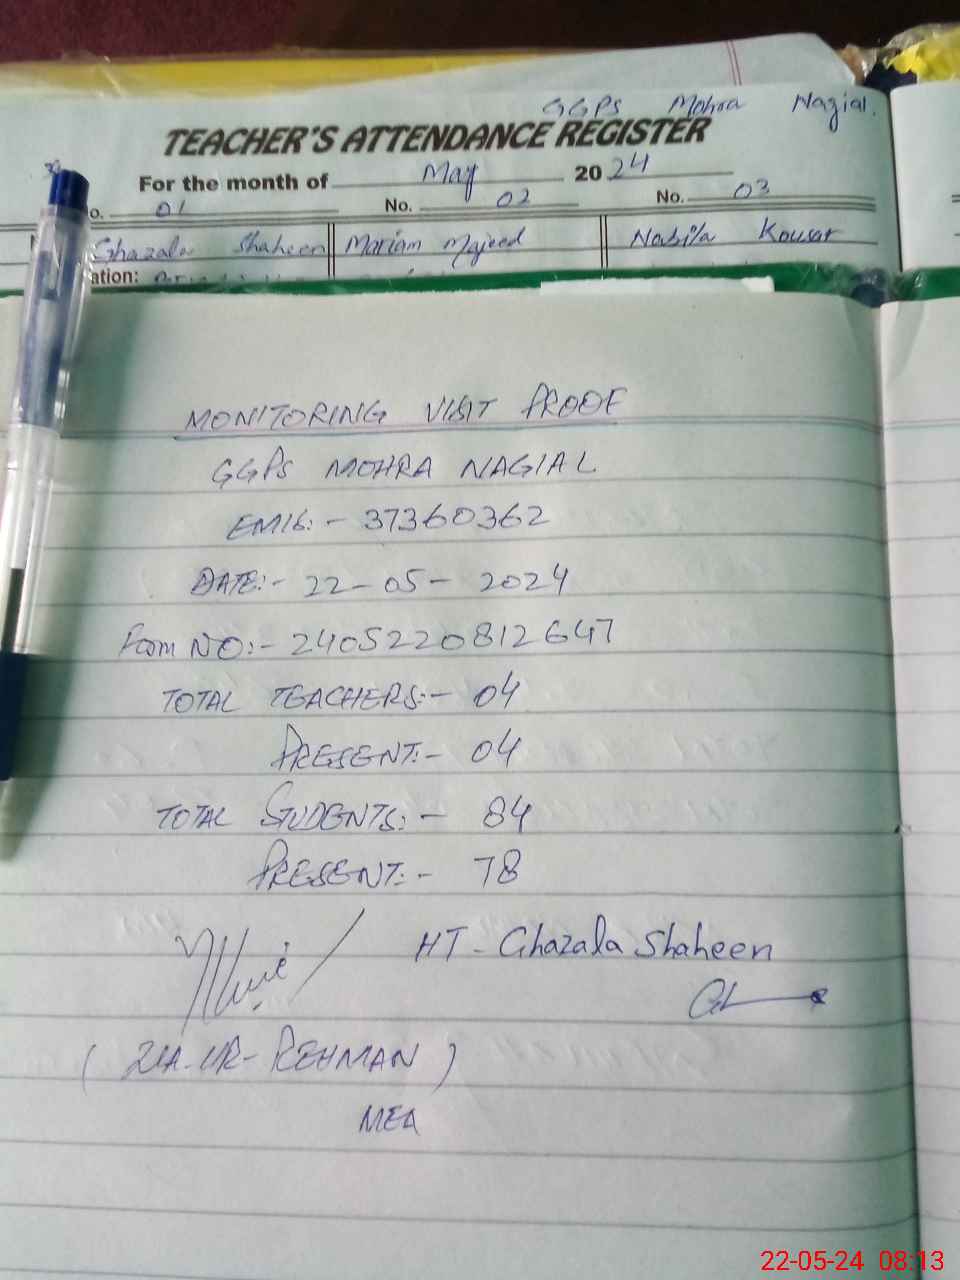 GGPS Mohra Nagial.
TEACHER'S ATTENDANCE REGISTER
For the month of May 2024
o. 01 No. 02 No. 03
Ghazala Shaheen Mariam Majeed Nabila Kousar
ation:
MONITORING VISIT PROOF
GGPS MOHRA NAGIAL
EMIS:- 37360362
DATE:- 22-05-2024
Form NO:- 2405220812647
TOTAL TEACHERS:- 04
PRESENT:- 04
TOTAL STUDENTS:- 84
PRESENT:- 78
HT- Ghazala Shaheen
(ZIA-UR-REHMAN)
MEA
22-05-24 08:13